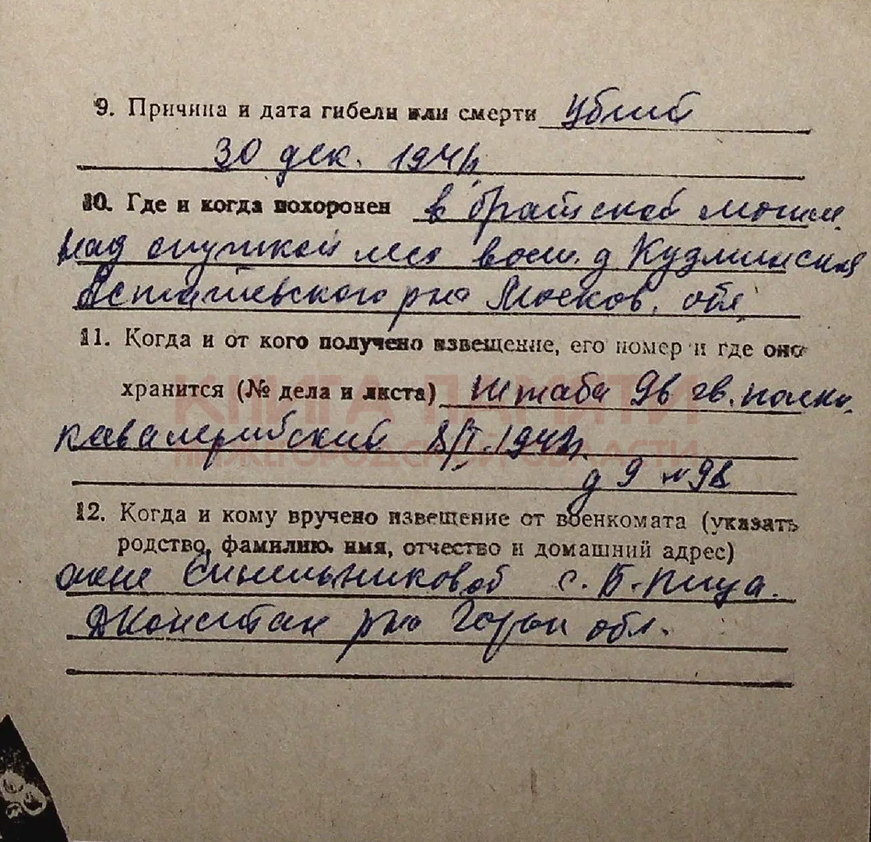 9. Причина и дата гибели или смерти убит
30 дек. 1941г
10. Где и когда похоронен в братской могиле
над опушкой лес вост. д Кудлинская
Осташевского рна Москов. обл
11. Когда и от кого получено извещение, его номер и где оно
хранится (№ дела и листа) Штаба 9в гв. полка
кавалерийский 8/I. 1942г.
д 9 н 98
12. Когда и кому вручено извещение от военкомата (указать
родство, фамилию, имя, отчество и домашний адрес)
жене Синельниковой с. Б-Пица.
ДКонстан рна Горьк обл.
КНИГА ПАМЯТИ
НИЖЕГОРОДСКОЙ ОБЛАСТИ